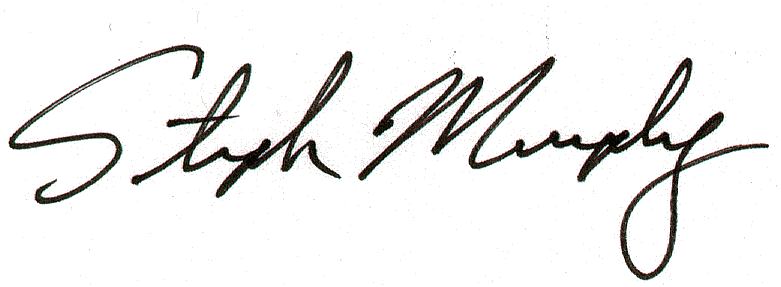 Steph Murphy